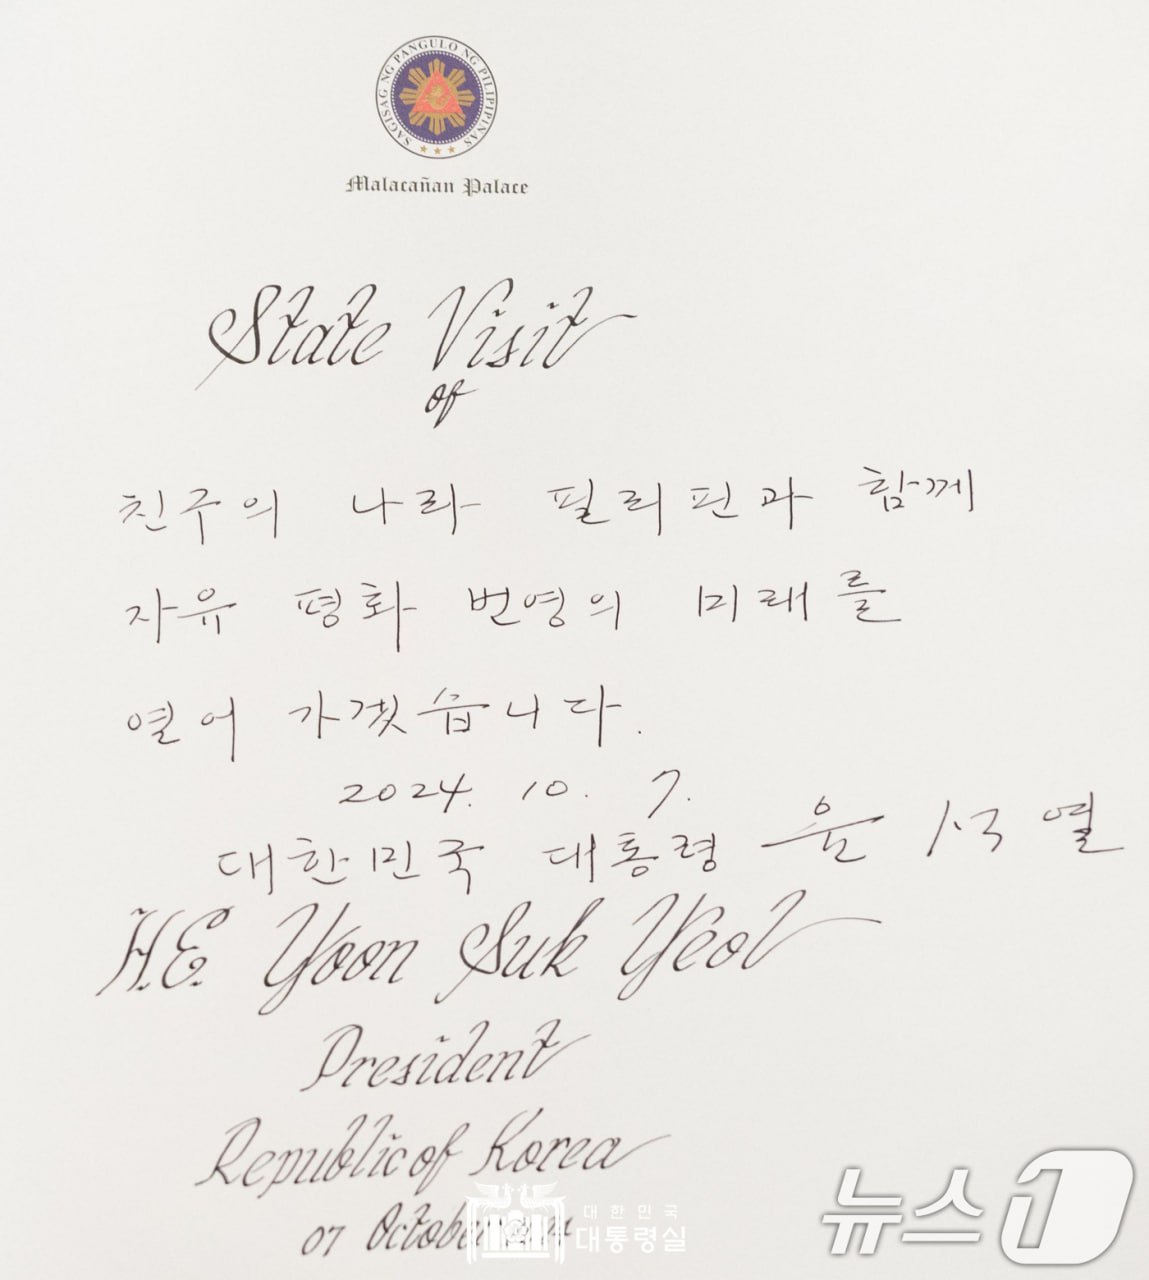 SAGISAG NG PANGULO NG PILIPINAS
Malacañan Palace
State Visit
of
친구의 나라 필리핀과 함께
자유 평화 번영의 미래를
열어 가겠습니다.
2024. 10. 7.
대한민국 대통령 윤석열
H.E. Yoon Suk Yeol
President
Republic of Korea
07 October 2024
대한민국
대통령실
뉴스1